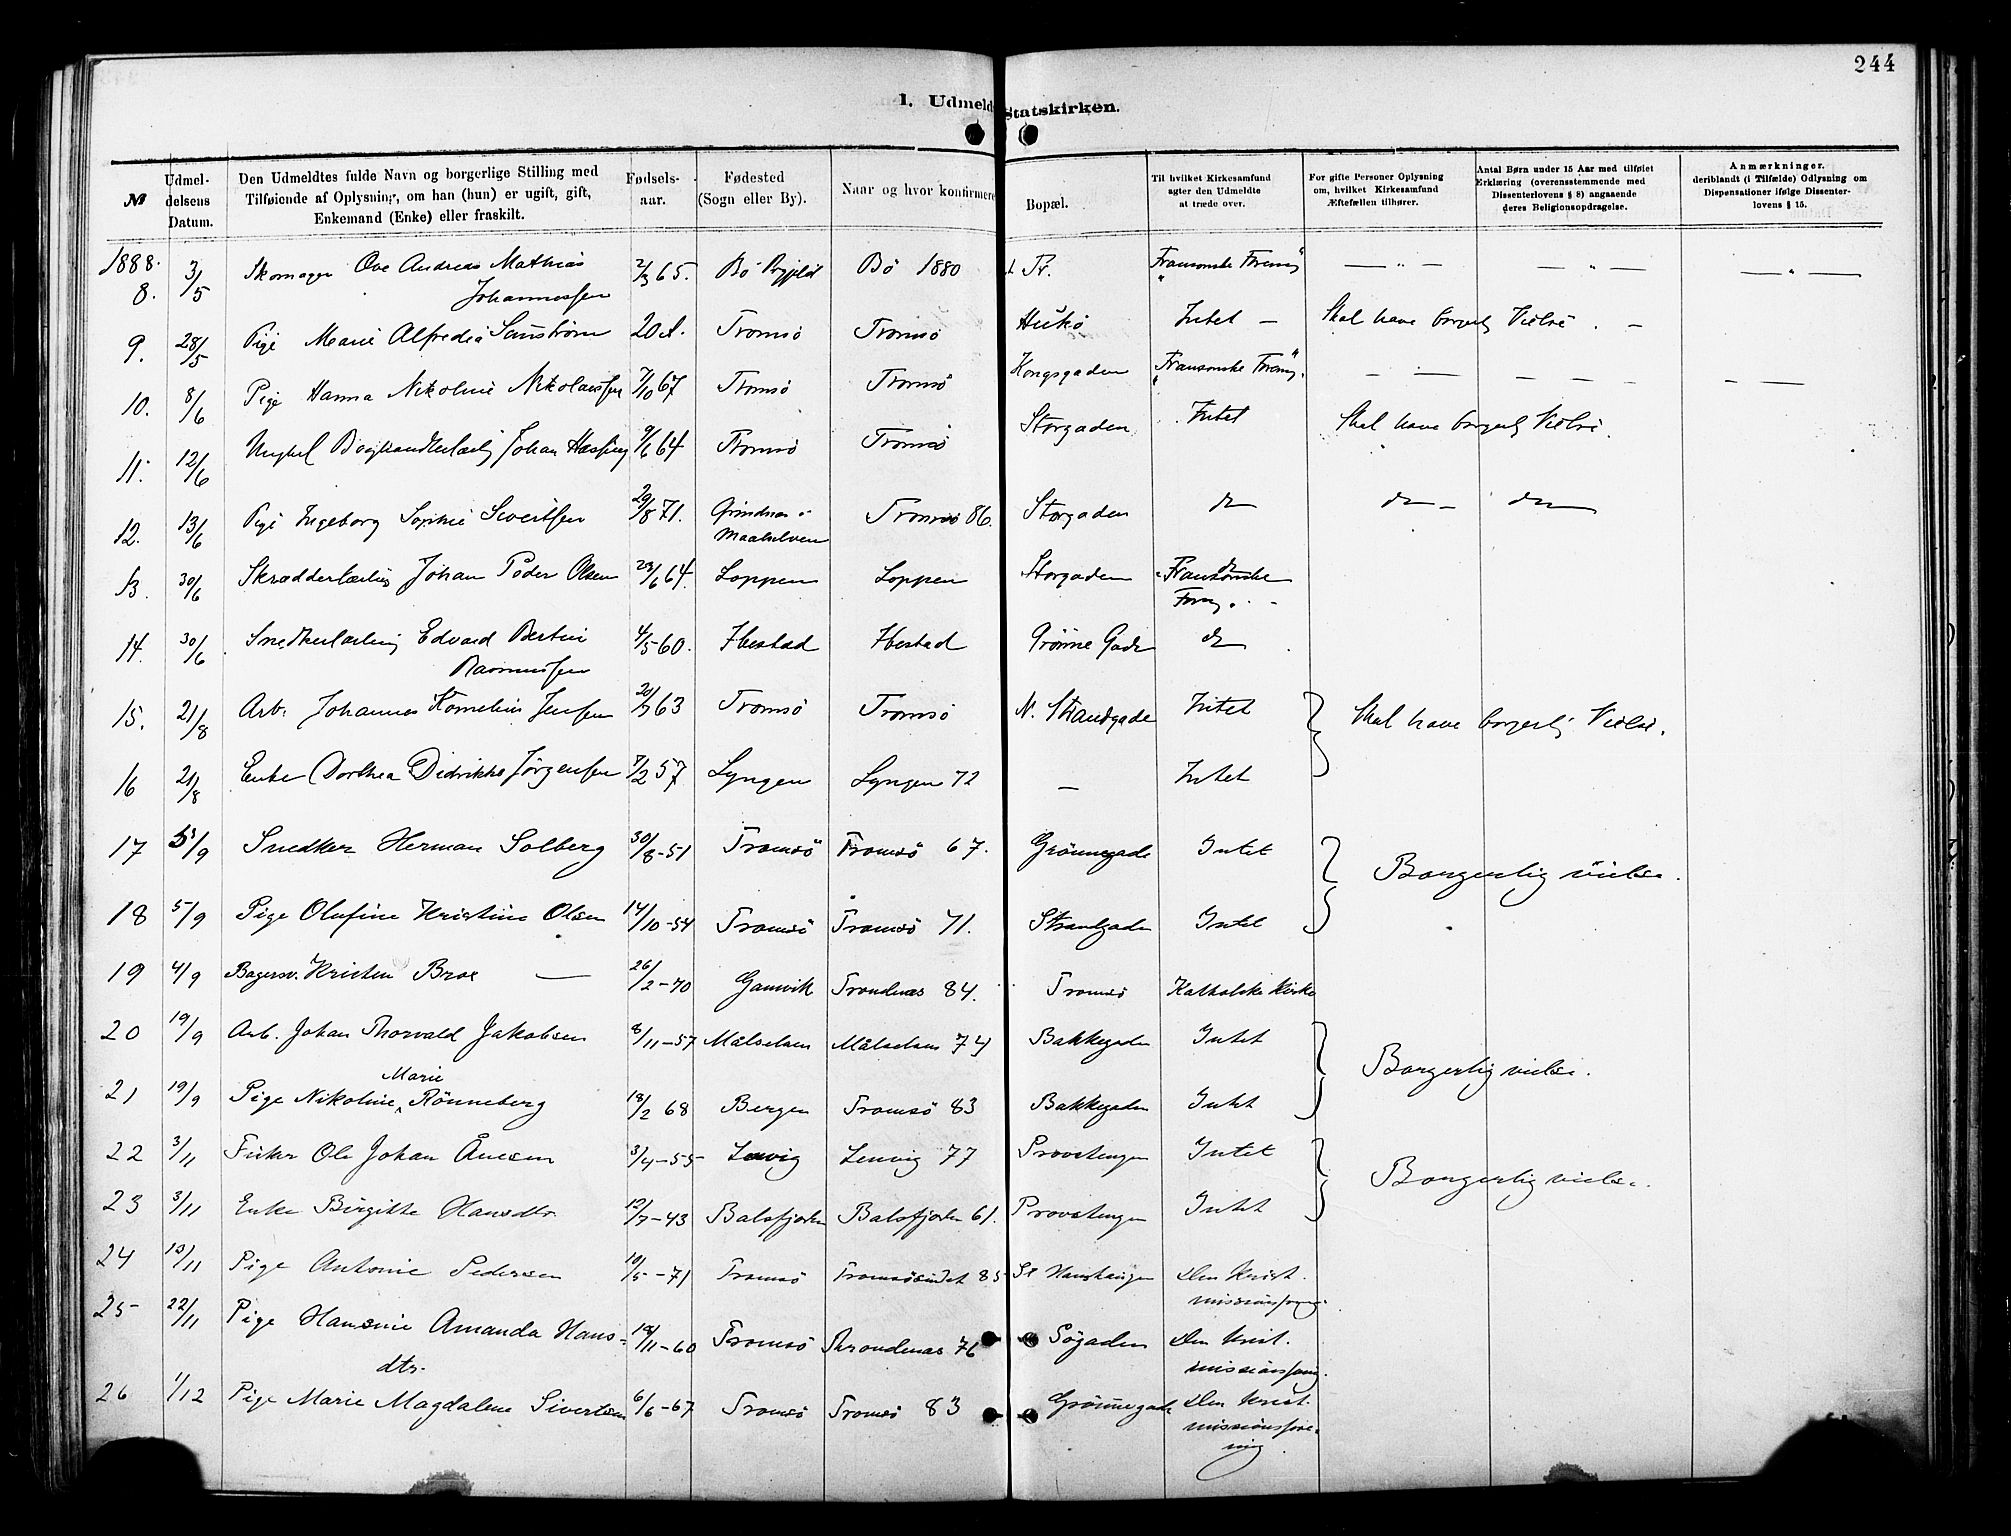 244
1. Udmeld Statskirken.
№ | Udmel-delsens Datum. | Den Udmeldtes fulde Navn og borgerlige Stilling med Tilføiende af Oplysning, om han (hun) er ugift, gift, Enkemand (Enke) eller fraskilt. | Fødsels-aar. | Fødested (Sogn eller By). | Naar og hvor konfirmere | Bopæl. | Til hvilket Kirkesamfund agter den Udmeldte at træde over. | For gifte Personer Oplysning om, hvilket Kirkesamfund Ægtefællen tilhører. | Antal Børn under 15 Aar med tilføiet Erklæring (overensstemmende med Dissenterlovens § 8) angaaende deres Religionsopdragelse. | Anmærkninger. deriblandt (i Tilfælde) Odlysning om Dispensationer ifølge Dissenter-lovens § 15.
1888.
8. 3/5 Skomager Ove Andreas Mathias Johannessen 2/3 65. Bö Bö 1880 Tr. — " — — " — — " —
9. 28/5 Pige Marie Alfredia 20 A. Tromsö Tromsö Intet — Skal have borgerlig Vielse . —
10. 8/6 Pige Hanna Nikoline Nikolaissen 7/10 67 Tromsö Tromsö Kongsgaden
11. 12/6 Johan 9/6 64 Tromsö Tromsö Storgaden Intet Skal have borgerlig Vielse.
12. 13/6 Pige Ingeborg Sophie Sivertsen 29/8 71. Grindnes i Maalselven Tromsö 86. Storgaden do do — do
13. 30/6 Skrædderlærling Johan Peder Olsen 29/6 64. Loppen Loppen Storgaden
14. 30/6 Snedkerlærling Edvard Bertin Rasmussen 4/5 60. Ibestad Ibestad Grönne Gade do
15. 21/8 Arb. Johannes Kornelius Jensen 20/3 63 Tromsö Tromsö N. Strandgade Intet Skal have borgerlig Vielse.
16 21/8 Enke Dorthea Didrikke Jörgensen 7/2 57 Lyngen Lyngen 72 — Intet
17 5/9 Snedker Herman Solberg 30/8-51 Tromsö Tromsö 67. Grönnegade Intet Borgerlig vielse.
18 5/9 Pige Olufine Kristine Olsen 14/10-54 Tromsö Tromsö 71. Strandgaden Intet
19 4/9 Bagersv. Kristen Brox — 26/2-70 Gamvik Trondenæs 84. Tromsö Katholske Kirke
20 19/9 Arb. Johan Thorvald Jakobsen 8/11-57 Målselven Målselven 74 Bakkegaden Intet Borgerlig vielse.
21 19/9 Pige Nikoline Marie Rönneberg 18/2 68 Bergen Tromsö 83 Bakkegaden Intet
22 3/11 Fisker Ole Johan Ånesen 3/4-55 Lenvig Lenvig 77 Provstengen Intet Borgerlig vielse.
23 3/11 Enke Birgitte Hansdtr. 12/7-43 Balsfjorden Balsfjorden 61. Provstengen Intet
24 10/11 Pige Antonie Pedersen 10/5-71 Tromsö Tromsösundet 85 St Hanshaugen Den Krist. missionsforeng.
25 22/11 Pige Hansine Amanda Hans-dtr. 18/11-60 Tromsö Throndenæs 76 Søgaden Den Krist. missionsforeng.
26 1/12 Pige Marie Magdalene Sivertsen 6/6-67 Tromsö Tromsö 83 Grönnegade Den Krist. missionsfore-ning